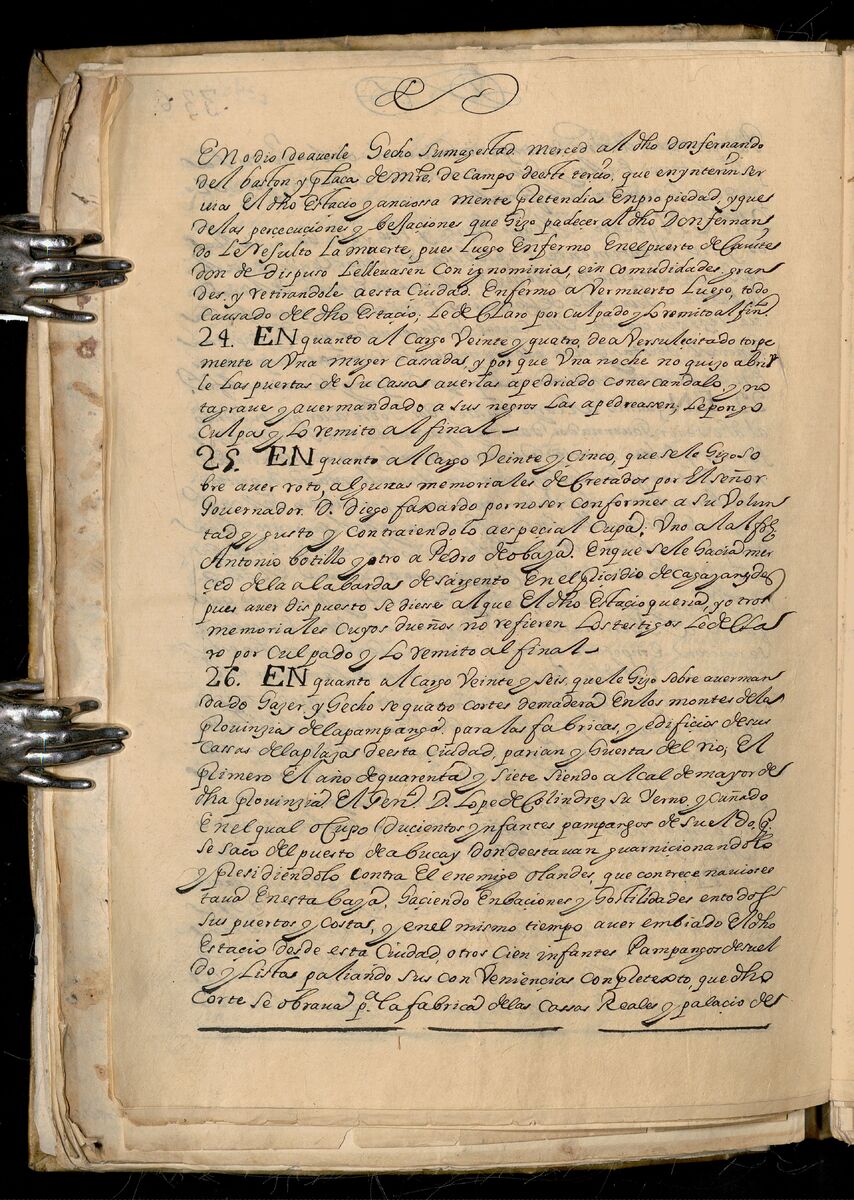 En odio de auerle Hecho su magestad merced al dho don fernando
del baston y plaça de Mre. de Campo deste terçio, que en ynterin ser
uia El dho Estacio y anciossa mente pretendia En propiedad, y que s
de las percecuciones y bejaciones que Hizo padecer al dho Don fernan
do Le Resulto La muerte, pues Luego Enfermo En el puerto de Cauite
donde dispuso Le lleuasen Con ignominia, e in comudidades gran
des. y retirandole a esta Ciudad. Enfermo a Ver muerto Luego, todo
Causado del dho Estacio, Le de Claro por Culpado y Lo remito al fin.l
24. EN quanto al Cargo Veinte y quatro, de a Ver sulicitado torpe
mente a Vna muger Cassada, y por que Vna noche no quizo abrir
le Las puertas de Su Cassa auerlas apedriado con escandalo, y no
ta graue y auer mandado a sus negros Las apedreassen, Le pongo
Culpa y Lo remito al final
25. EN quanto al Cargo Veinte y Cinco, que se le Hizo so
bre auer roto, algunas memoriales de Cretados por El señor
Gouernador. D. Diego faxardo por no ser Conformes a Su Volun
tad y gusto y Contraiendolo a especial Cupa; Vno al
Antonio botillo y otro a Pedro de obaja. En que se le Hacia mer
çed de la alabarda de Sargento En el Picidio de Cagayan, des
pues auer dispuesto se diesse al que El dho Estacio queria, y otros
memoriales Cuyos dueños no refieren Los testigos Le de Cla
ro por Culpado y Lo remito al final
26. EN quanto al Cargo Veinte y Seis, que le Hizo sobre auer man
dado Hazer, y Hecho se quatro Cortes de madera En los montes de la
Prouinzia de la pampanga. para las fabricas, y edificios de sus
Cassas de la plaza de esta Ciudad, parian y Huertas del rio; El
primero El año de quarenta y Siete Siendo alcalde mayor de
dha Prouinzia El Genl. D. Lope de Colindrez Su Yerno y Cuñado
En el qual oCupo Ducientos ynfantes pampangos de Sueldo, q.
Se saco del puesto de abucay Donde estauan guarnicionandolo
y presidiendolo Contra El enemigo olandes, que con trece nauios es
taua En esta baya, Haciendo Enbaciones y Hostilidades en todos
sus puertos y Costas, y en el mismo tiempo auer embiado El dho
Estacio desde esta Ciudad, otros Cien infantes Pampangos de suel
do y Listas paliando Sus Con Veniencias Con pretexto, que dho
Corte Se obraua p.a la fabrica de las Cassas Reales y palacio de